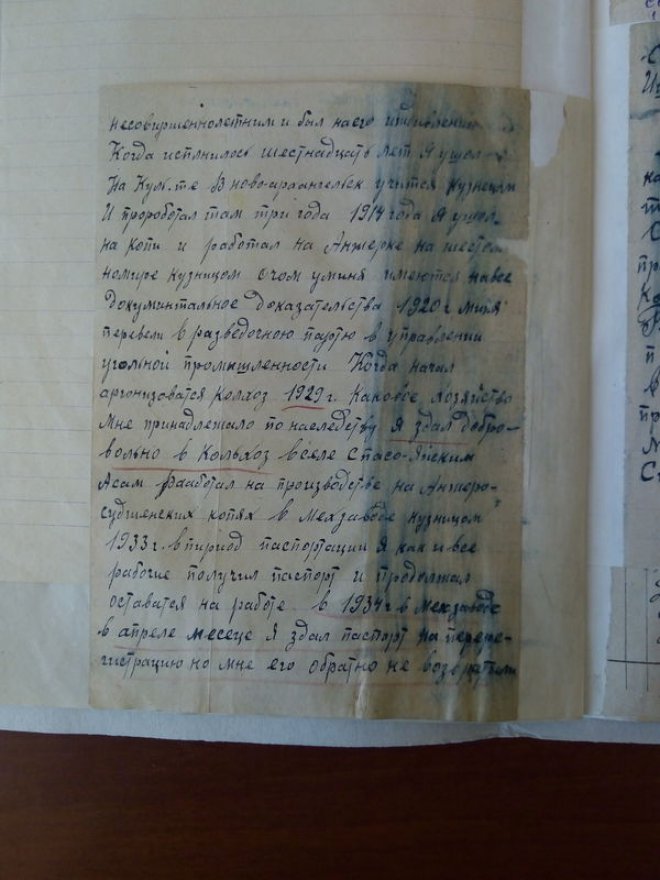 несовиршеннолетним и был наего иждивлении
Когда исплнилось шестнадцать лет Я ушол
На Куль.те В ново-архангельск учится Кузнецом
И проработал там три года 1914 года Я ушол
на копи и работал на Анжерке на шестом
номире кузницом очом уминя имеются навсе
Документальное доказательства 1920 г миня
перевели в разведочною партю в управлении
угольной промышленности Когда начил
аргонизоватся Колхоз 1929 г. Каковое хозяйство
Мне принадлежало по наследству Я здал добро-
вольно в Кольхоз вселе Спасо-Яйским
Асам Рааботал на производстве на Анжеро-
судженских копях в Мехзаводе кузницом
1933 г. впириод паспортации Я как и все
рабочие получил паспорт и продолжал
оставатся на работе в 1934 г в Мехзаводе
в апреле месеце Я здал паспорт на перере-
гистрацию но мне его обратно не возвратили